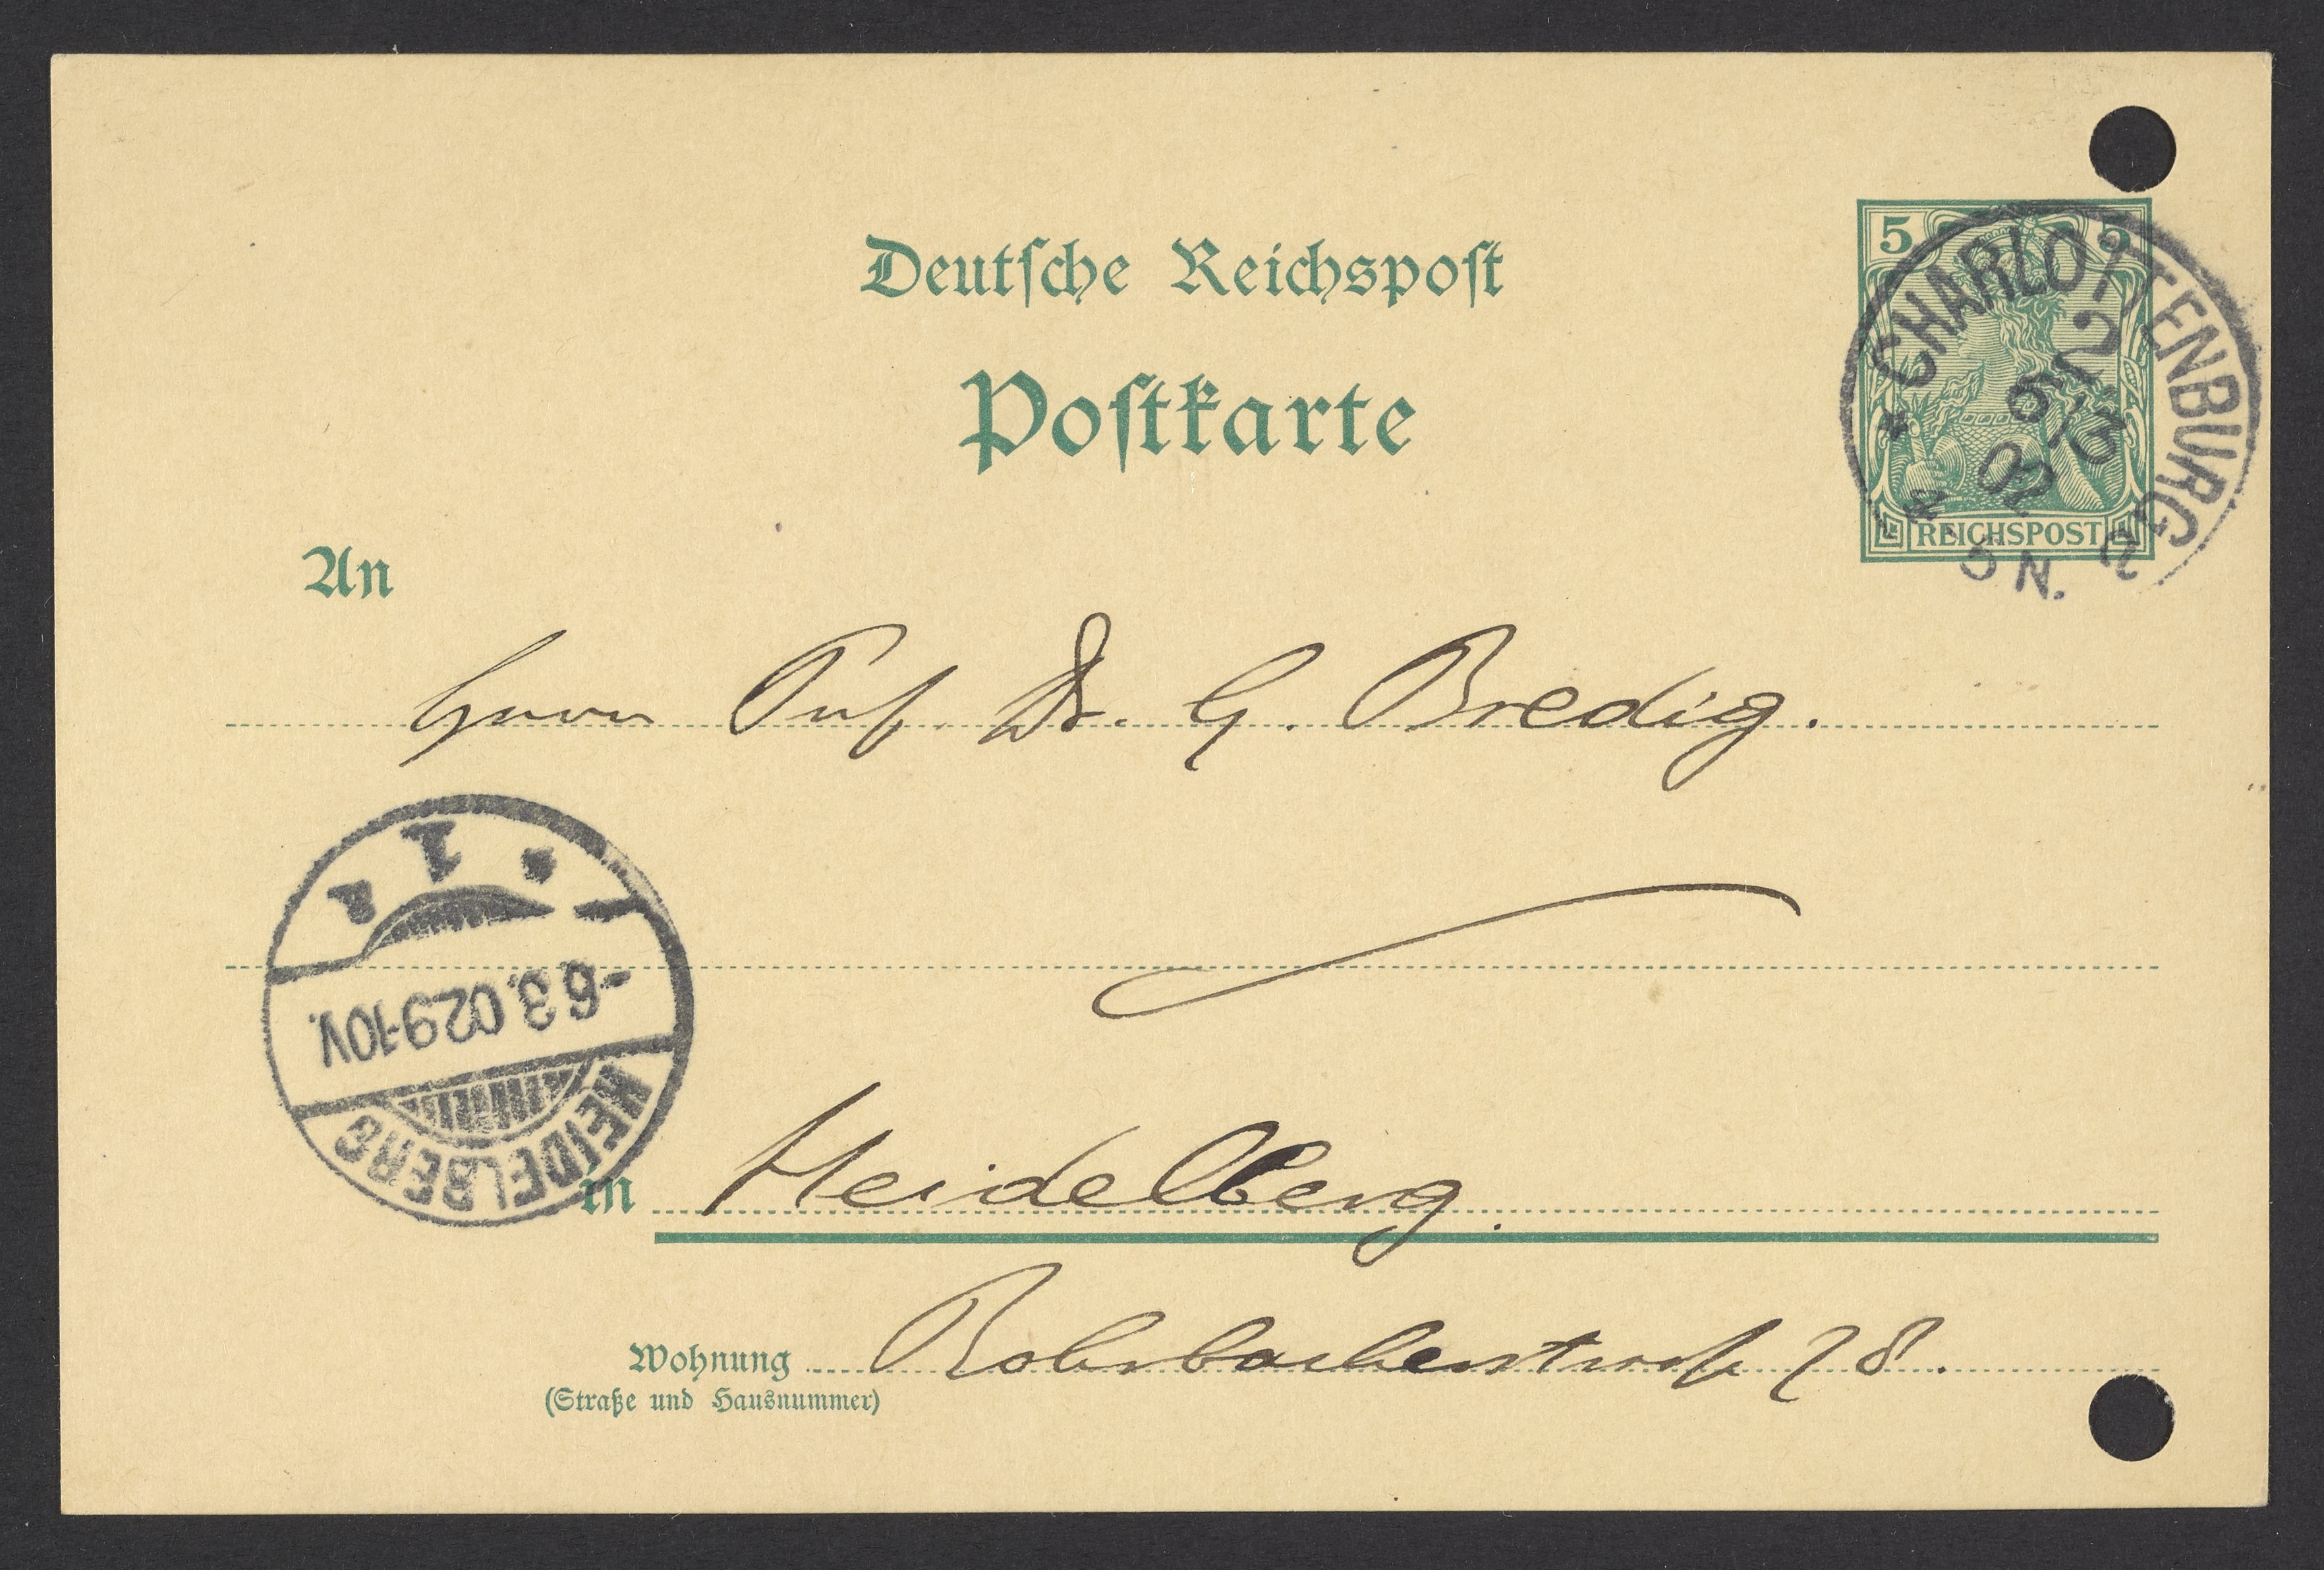 Deutsche Reichspost
Postkarte
5 5
REICHSPOST
CHARLOTTENBURG 2
5/3
02
N.
An
Herrn Prof. Dr. G. Bredig.
1 a
-6.3.02 9-10V.
HEIDELBERG
in Heidelberg.
Wohnung Rohrbacherstraße 28.
(Straße und Hausnummer)